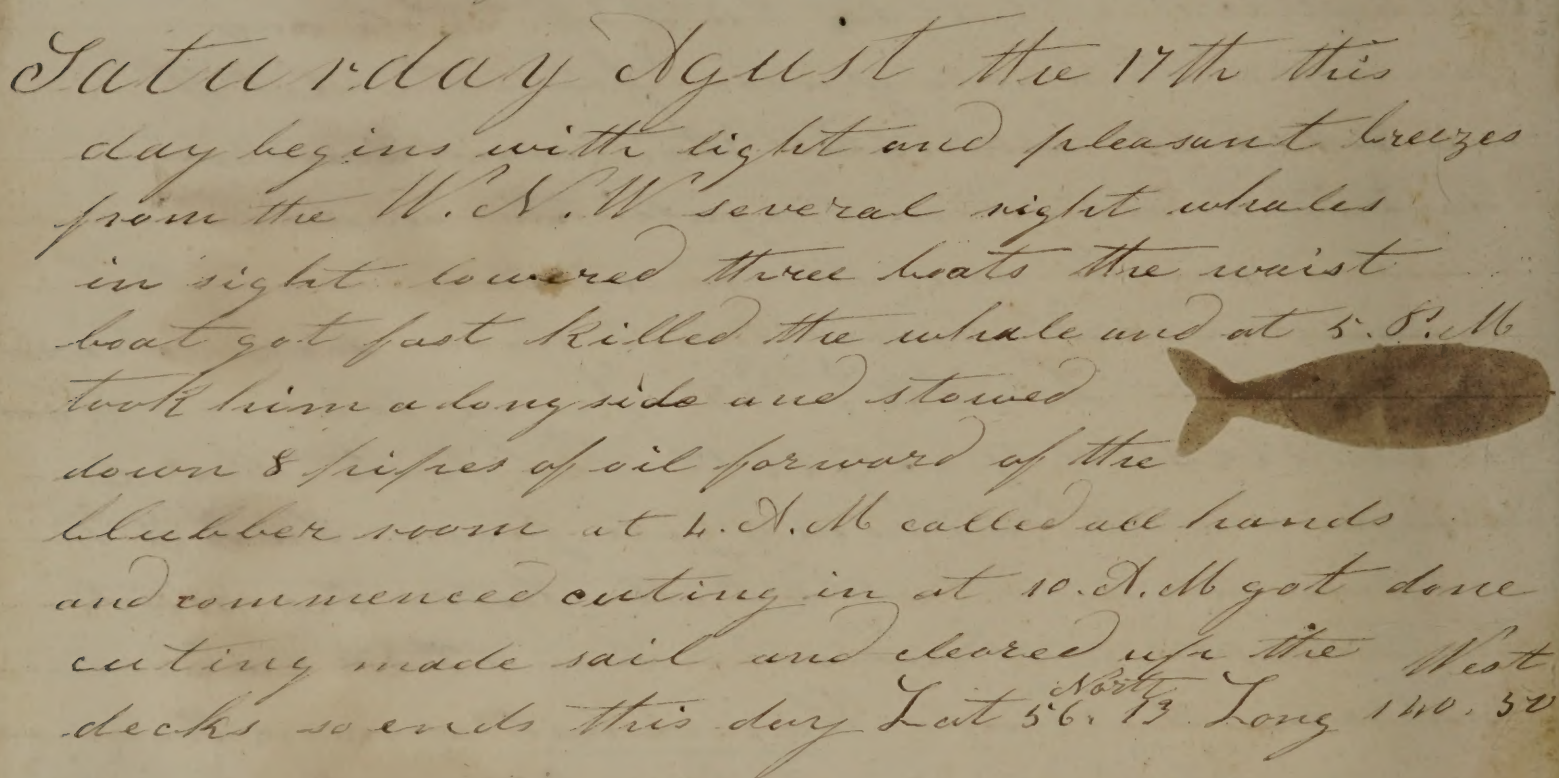 Saturday Agust the 17th this
day begins with light and pleasant breezes
from the W.N.W several right whales
in sight lowered three boats the waist
boat got fast killed the whale and at 5. P. M
took him a long side and stowed
down 8 pipes of oil forward of the
blubber room at 4. A. M called all hands
and commenced cuting in at 10. A. M got done
cuting made sail and cleared up the
decks so ends this day Lat 56. 13 North Long 140. 50 West